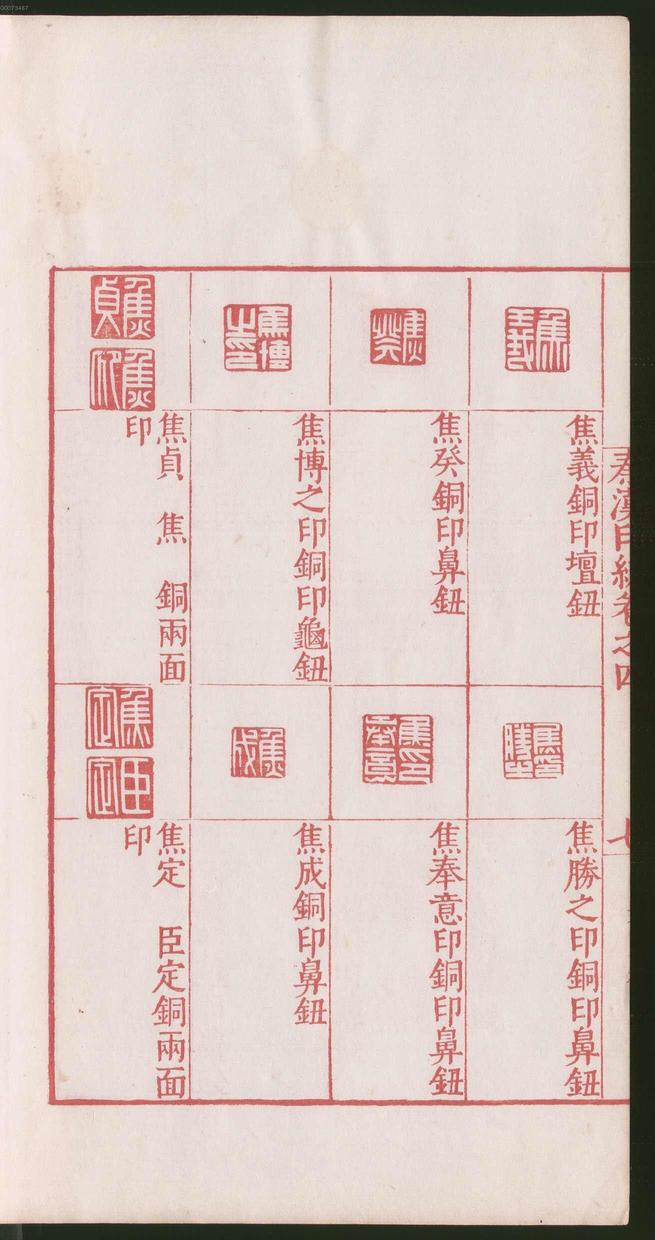 00073467
秦漢印統卷之四
七
焦義銅印壇鈕
焦癸銅印鼻鈕
焦博之印銅印龜鈕
焦貞　焦　銅兩面
印
焦勝之印銅印鼻鈕
焦奉意印銅印鼻鈕
焦成銅印鼻鈕
焦定　臣定銅兩面
印